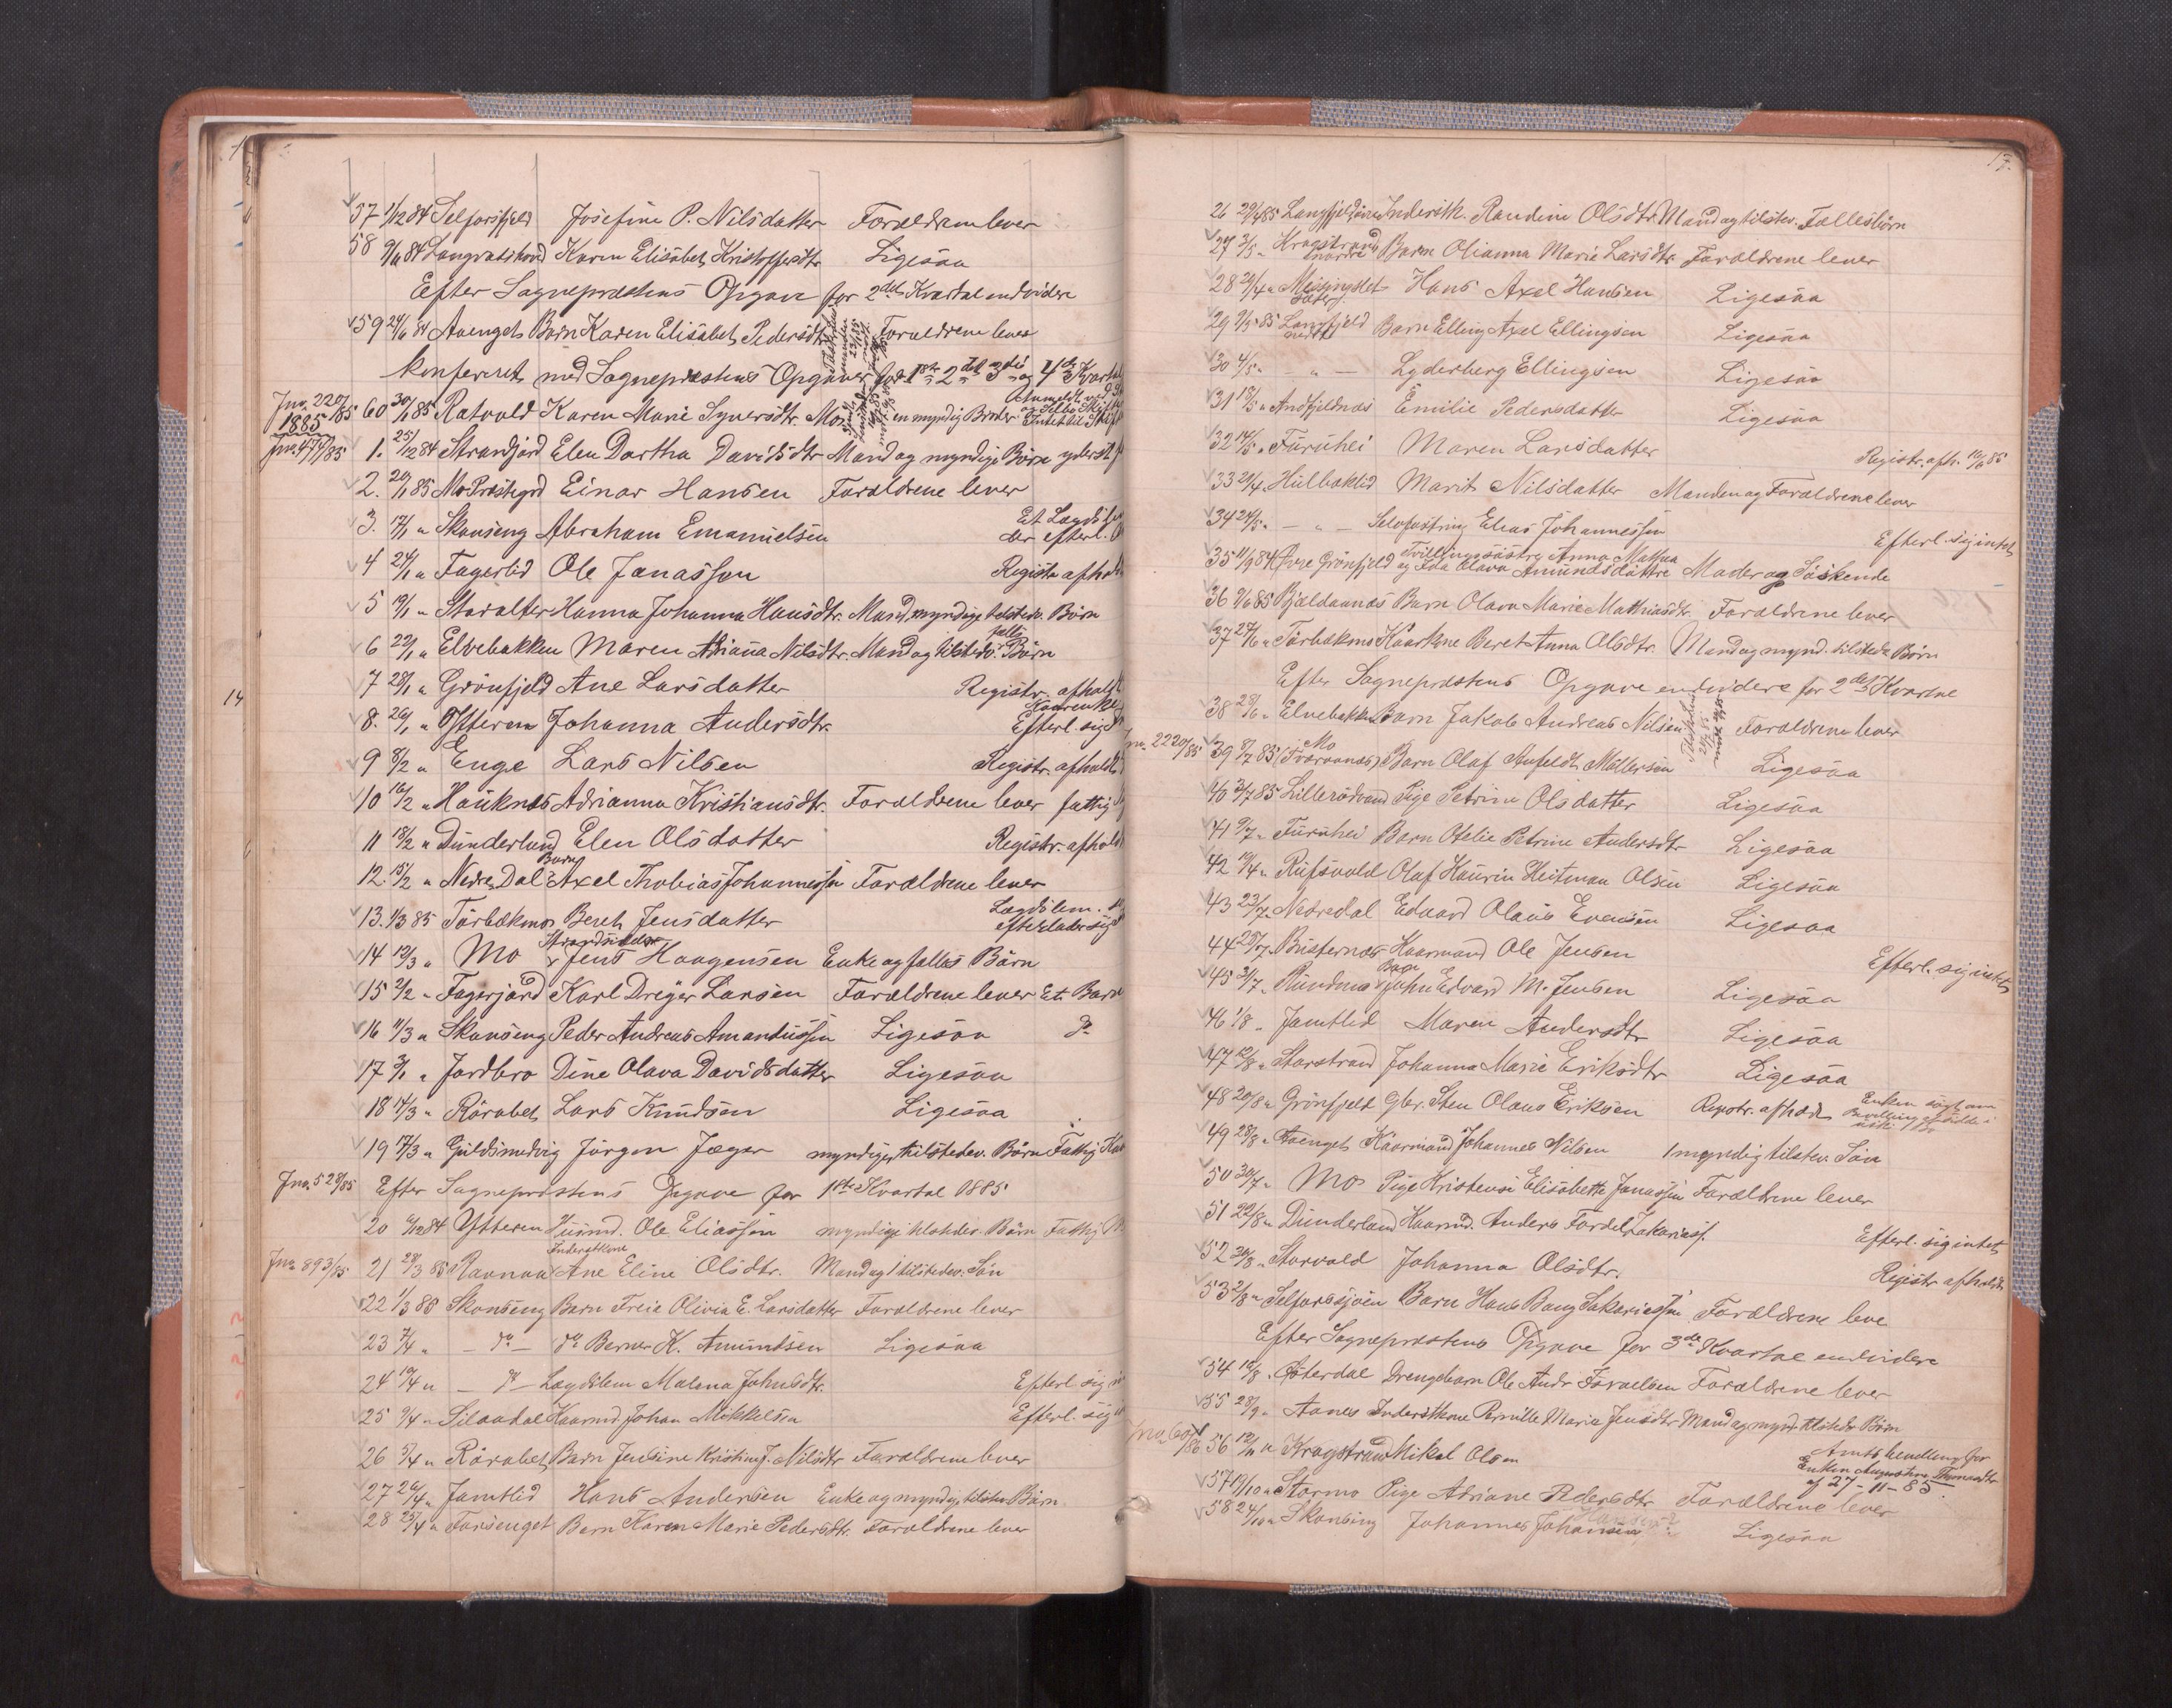 57 1/12 84 Selforsfjeld Josefine P. Nilsdatter Forældrene lever
58 9/11 84 Langvatskoud Karen Elisabet Kristoffersdtr Ligesaa
Efter Sognepræstens Opgave for 2det Kvartal endvidere
59 24/6 84 Avenget Barn Karen Elisabet Pedersdtr Forældrene lever
konfereret med Sognepræstens Opgaver for 1ste 2det 3die og 4de Kvartal
Jno. 220/85 60 30/1 85 Ratvold Karen Marie Synersdtr. Mor en myndig Broder
1885
Jno. 474/85 1. 25/12 84 Strandjord Elen Dorthea Davidsdtr Mand og myndige Börn yderst
2. 20/1 85 Mo Præstegrd Einar Hansen Forældrene lever
3. 17/1 " Skonseng Abraham Emanuelsen Et Lægdsl
der efterl.
4 24/1 " Fagerlid Ole Jonassen Registr afhol
5 19/1 " Storalter Hanna Johanna Hansdtr. Mand, myndige tilstedev. Börn
6 22/1 " Elvebakken Maren Adriana Nilsdtr. Mand og tilstedv. fælles Börn
7 28/1 " Grönfjeld Ane Larsdatter Registr. afhold
8. 26/1 " Ytteren Johanna Andersdtr. Kaarenke
Efterl. sig
9 8/2 " Enge Lars Nilsen Registr. afholdt
10 16/2 " Hauknes Adrianna Kristiansdtr. Forældrene lever fattig
11 18/2 " Dunderland Elen Olsdatter Registr. afhold
12. 15/2 " Nedre Dal Barn Axel Thobias Johannessen Forældrene lever
13. 1/3 85 Törbækmo Beret Jensdatter Lægdslem.
efterlader sig
14 12/3 " Mo Strandsidder Jens Haagensen Enke og fælles Börn
15 2/2 " Fagerjord Karl Dreyer Larsen Forældrene lever Et Barn
16 11/3 " Skonseng Peder Andreas Amandussen Ligesaa do
17 3/1 " Jordbro Dine Olava Davidsdatter Ligesaa
18 14/3 " Rörabet Lars Knudsen Ligesaa
19 17/3 " Guldsmedvig Jörgen Jæger myndige tilstedev. Börn Fattig
Jno. 528/85 Efter Sognepræstens Opgave for 1ste Kvartal 1885
20 6/12 84 Ytteren Husmd. Ole Eliassen myndige tilstedev. Börn Fattig
Jno. 893/85 21 28/3 85 Ravnaa Inderstkone Ane Eline Olsdtr. Mand og 1 tilstedev. Sön
22 1/3 85 Skonseng Barn Freie Olivia E. Larsdatter Forældrene lever
23 7/4 " – do – do Berner K. Amundsen Ligesaa
24 19/4 " – do – Lægdslem Malena Johnsdtr. Efterl. sig
25 9/4 " Silaadal Kaarmd. Johan Mikkelsen Efterl. sig
26 5/4 " Rörabet Barn Jensine Kristine J. Nilsdtr Forældrene lever
27 26/4 " Jamtlid Hans Andersen Enke og myndige tilstedev Börn
28 25/4 " Forsenget Barn Karen Marie Pedersdtr. Forældrene lever
14
17.
26 29/4 85 Langfjeld övre Inderstk. Randine Olsdtr. Mand og tilstev. Fællesbörn
27 3/5 " Kragstrand nordre Barn Olianna Marie Larsdtr. Forældrene lever
28 24/4 " Messingslet Hans Axel Hansen Ligesaa
29 9/5 85 Langfjeld nedre Barn Elling Axel Ellingsen Ligesaa
30 4/5 " – " – Lyderberg Ellingsen Ligesaa
31 13/5 " Andfjeldnæs Emilie Pedersdatter Ligesaa
32 14/5 " Furuhei Maren Larsdatter Registr. afh. 10/6 85
33 21/4 " Hulbæklid Marit Nilsdatter Manden og Forældrene lever
34 24/5 " – " – Selvfostring Elias Johannessen Efterl. sig intet
35 11/9 84 Övre Grönfjeld Tvillingesöstre Anna Mathea
og Ida Olava Amundsdöttre Moder og Söskende
36 9/6 85 Bjældaanæs Barn Olava Marie Mathiasdtr. Forældrene lever
37 27/6 " Törbækmo Kaarkone Beret Anna Olsdtr. Mand og mynd. tilstede Börn
Efter Sognepræstens Opgave endvidere for 2det Kvartal
38 28/6 " Elvebakken Barn Jakob Andreas Nilsen Forældrene lever
Jno. 2220/85 39 8/7 85 Mo (Tværaanæs) Barn Olaf Anfeldt Möllersen Ligesaa
40 3/7 85 Lillerödvand Pige Petrine Olsdatter Ligesaa
41 9/7 " Furuhei Barn Otelie Petrine Andersdtr Ligesaa
42 19/4 " Rufsvold Olaf Kaurin Heitman Olsen Ligesaa
43 23/7 " Nedredal Edvard Olaus Evensen Ligesaa
44 25/7 " Busternæs Kaarmand Ole Jensen Efterl. sig intet
45 3/7 " Rundmo John Edvard M. Jensen Ligesaa
46 1/8 " Jamtlid Maren Andersdtr Ligesaa
47 12/8 " Storstrand Johanna Marie Eriksdtr Ligesaa
48 20/8 " Grönfjeld Gbr. Sten Olaus Eriksen Regstr. afholdt Enken sögt om
Bevilling
49 28/8 " Avenget Kaarmand Johannes Nilsen 1 myndig tilstev. Sön
50 30/7 " Mo Pige Kristensi Elisabeth Jonassen Forældrene lever
51 22/8 " Dunderland Kaarmd. Anders Fordel Zakariass. Efterl. sig intet
52 29/8 " Storvold Johanna Olsdtr. Registr afholdt
53 2/8 " Selforssjöen Barn Hans Bang Sakariassen Forældrene leve
Efter Sognepræstens Opgave for 3de Kvartal endvidere
54 18/8 " Österdal Drengebarn Ole Andr Israelsen Forældrene lever
55 28/9 " Aanes Inderstkone Pernille Maria Jensdtr Mand og mynd tilstedv Börn
56 12/11 " Kragstrand Mikal Olsen Amts bevilling for
Enken Augustine Thomasdtr
af 27-11-85
57 19/10 " Stormo Pige Adriane Pedersdtr Forældrene lever
58 24/10 " Skonseng Johannes Johansen Hansen? Ligesaa